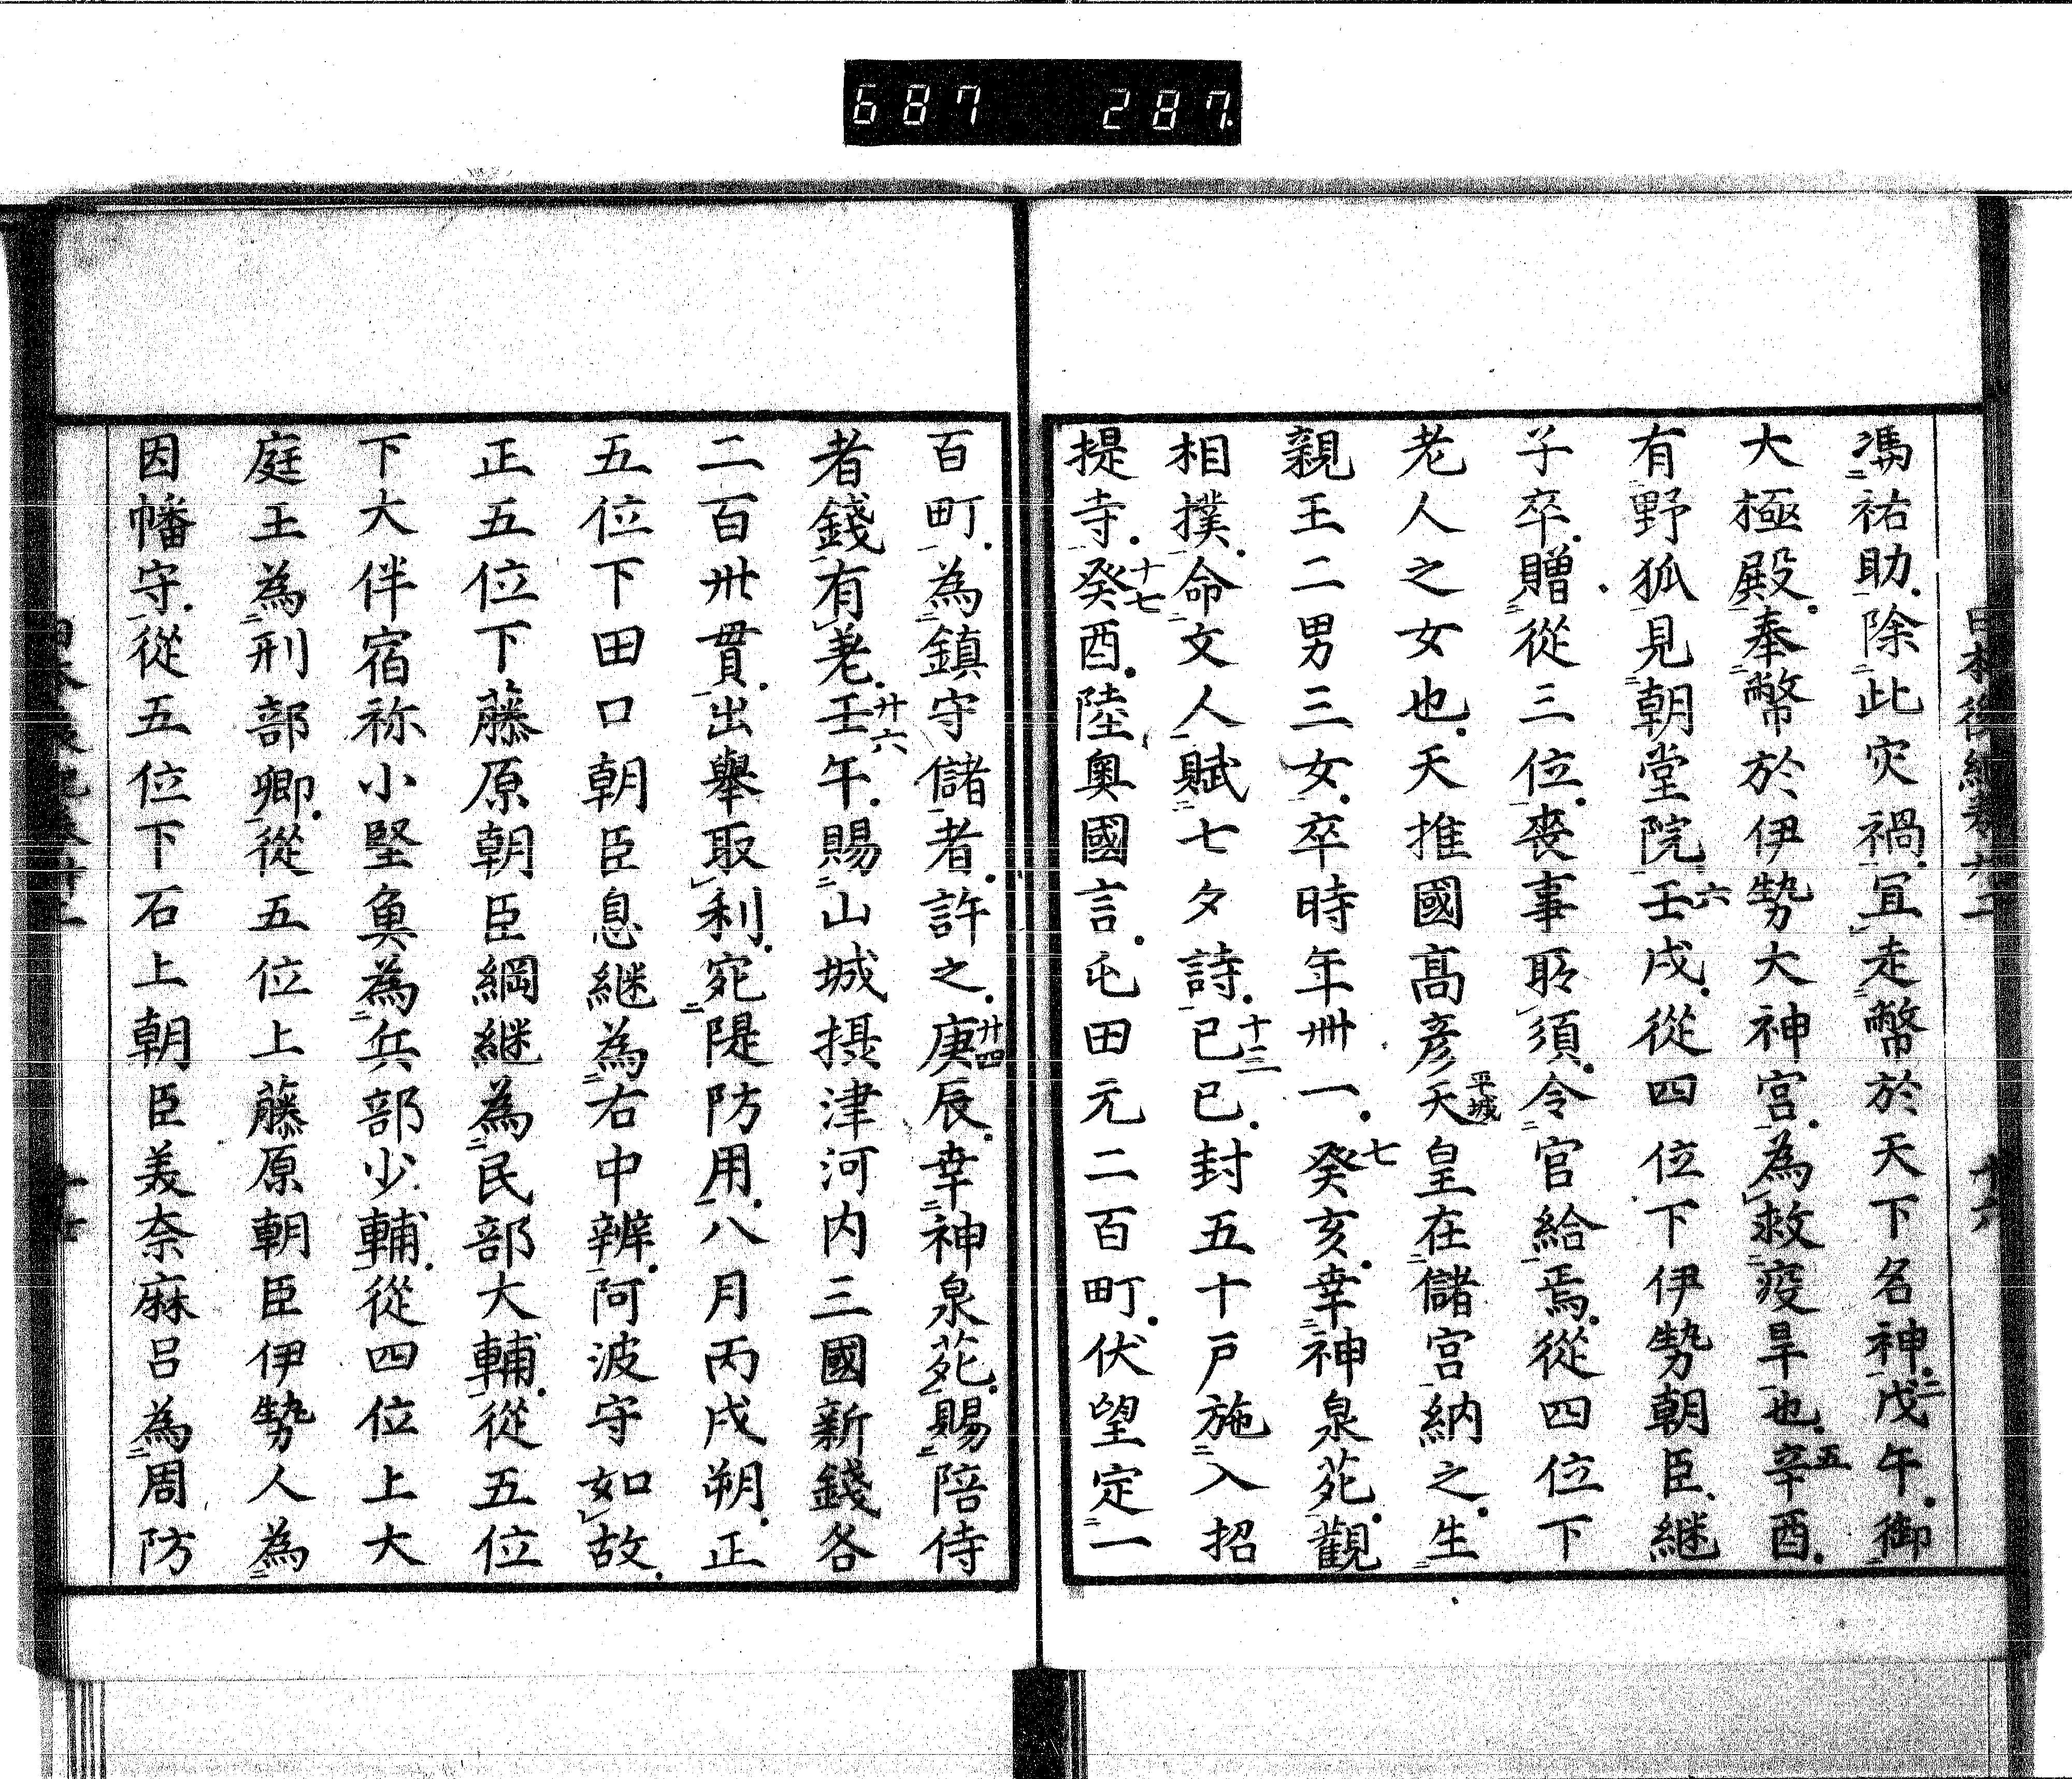 687 287
馮祐助除此灾禍宜走幣於天下名神戊午御
大極殿奉幣於伊勢大神宮為救疫旱也辛酉
有野狐見朝堂院壬戌從四位下伊勢朝臣継
子卒贈從三位喪事所須令官給焉從四位下
老人之女也天推國高彦天皇在儲宮納之生
親王二男三女卒時年卌一癸亥幸神泉苑觀
相撲命文人賦七夕詩己巳封五十戸施入招
提寺癸酉陸奥國言屯田元二百町伏望定一
百町為鎮守儲者許之庚辰幸神泉苑賜陪侍
者錢有差壬午賜山城摂津河内三國新錢各
二百卅貫出舉取利宛隄防用八月丙戌朔正
五位下田口朝臣息継為右中辨阿波守如故
正五位下藤原朝臣綱継為民部大輔從五位
下大伴宿祢小堅魚為兵部少輔從四位上大
庭王為刑部卿從五位上藤原朝臣伊勢人為
因幡守從五位下石上朝臣美奈麻呂為周防
二
五
六
平城
七
十三
十七
廿四
廿六